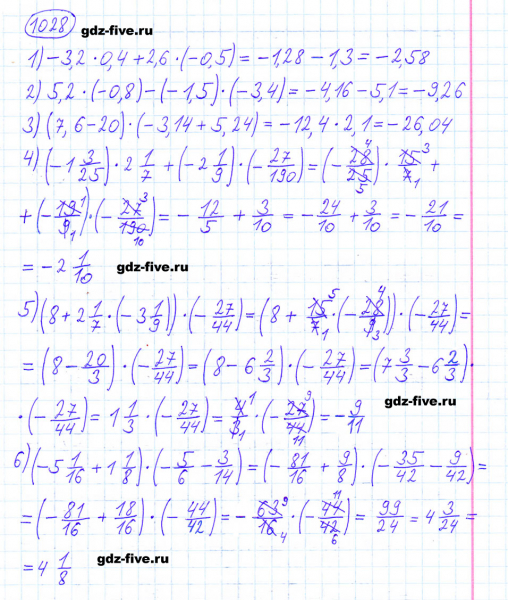 1028 gdz-five.ru
1) -3,2 · 0,4 + 2,6 · (-0,5) = -1,28 - 1,3 = -2,58
2) 5,2 · (-0,8) - (-1,5) · (-3,4) = -4,16 - 5,1 = -9,26
3) (7,6-20) · (-3,14 + 5,24) = -12,4 · 2,1 = -26,04
4) (-1 3/25) · 2 1/7 + (-2 1/9) · (-27/190) = (-28/25) · 15/7 +
+ (-19/9) · (-27/190) = -12/5 + 3/10 = -24/10 + 3/10 = -21/10 =
= -2 1/10 gdz-five.ru
5) (8 + 2 1/7 · (-3 1/9)) · (-27/44) = (8 + 15/7 · (-28/9)) · (-27/44) =
= (8 - 20/3) · (-27/44) = (8 - 6 2/3) · (-27/44) = (7 3/3 - 6 2/3) ·
· (-27/44) = 1 1/3 · (-27/44) = 4/3 · (-27/44) = -9/11 gdz-five.ru
6) (-5 1/16 + 1 1/8) · (-5/6 - 3/14) = (-81/16 + 9/8) · (-35/42 - 9/42) =
= (-81/16 + 18/16) · (-44/42) = -63/16 · (-44/42) = 99/24 = 4 3/24 =
= 4 1/8 gdz-five.ru